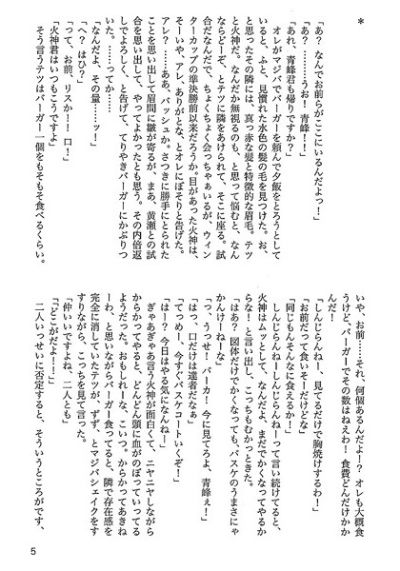 *
「あ？ なんでお前らがここにいるんだよっ！」
「あ？ ……うお！ 青峰！！」
「あれ、青峰君も帰りですか？」
オレがマジバでバーガーを頼んで夕飯をとろうとして
いると、ふと、見慣れた水色の髪の毛を見つけた。お、
と思ったその隣には、真っ赤な髪と特徴的な眉毛。テツ
と火神だ。なんだか無視するのも、と思って悩むと、なん
ならどーぞ、とテツに隣をあけられて、そこに座る。試
合だなんだで、ちょくちょく会っちゃぁいるが、ウィン
ターカップの準決勝前以来だろうか。目があった火神は、
そーいや、アレ、ありがとな、とオレにぼそりと告げた。
アレ？ ……ああ、バッシュか。さつきに勝手にとられた
ことを思い出して眉間に皺が寄るが、まあ、黄瀬との試
合を思い出して、やってよかったとも思う。その内倍返
しでよろしく、と告げて、てりやきバーガーにかぶりつ
いた。……ってか――
「なんだよ、その量……ッ！」
「へ？ はひ？」
「って、お前、リスか！！ 口！」
「火神君はいつもこうですよ」
そう言うテツはバーガー一個をもそもそ食べるくらい。
いや、お前……それ、何個あるんだよ！？ オレも大概食
うけど、バーガーでその数はねえわ！ 食費どんだけかか
んだ！
「しんじらんねー、見てるだけで胸焼けするわ！」
「お前だって食いそーだけどな」
「同じもんそんなに食えるか！」
しんじらんねーしんじらんねーって言い続けてると、
火神はムッとして、なんだよ、まだでかくなってやるか
らな！ と言い出し、こっちもむかっときた。
「はあ？ 図体だけでかくなっても、バスケのうまさにゃ
かんけーねーな」
「っ、うっせ！ バーカ！ 今に見てろよ、青峰ぇ！」
「はっ、口だけは達者だなぁ」
「てっめー、今すぐバスケコートいくぞ！」
「はー？ 今日はやる気になんねー」
ぎゃあぎゃあ言う火神が面白くて、ニヤニヤしながら
からかってやると、どんどん頭に血がのぼっていってる
ようだった。おもしれーな、こいつ。からかってあきね
ーわ、と思いながらバーガー食ってると、隣で存在感を
完全に消していたテツが、ずず、とマジバシェイクをす
すりながら、こっちを見て言った。
「仲いいですよね、二人とも」
「どこがだよ！！」
二人いっせいに否定すると、そういうところがです、
5